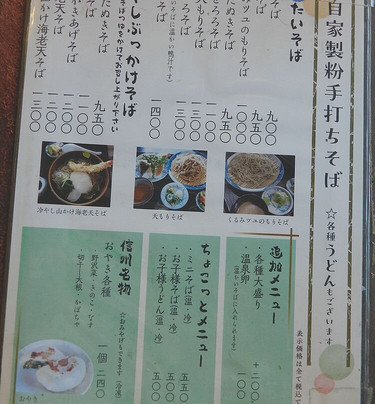 自家製粉手打ちそば
☆各種うどんもございます
たいそば
そば 九〇〇
みツュのもりそば
たぬきそば 九五〇
せいろそば
とろろそば
天もりそば
汁そば 一四〇〇
(もりそばに温かい鴨汁です)
やしぶっかけそば
そばつゆをかけてお召し上がり下さい
たぬきそば 九五〇
かきあげそば
海老天そば
山かけ海老天そば 一三〇〇
冷やし山かけ海老天そば
天もりそば
くるみツユのもりそば
追加メニュー
・各種大盛り +二〇〇
・温泉卵 一〇〇
(温かいそばに入れられます)
ちょこっとメニュー
・ミニそば(温・冷) 五五〇
・お子様そば(温・冷) 五五〇
・お子様うどん(温・冷) 五〇〇
信州名物
おやき各種 一個 二四〇
・野沢菜・きのこ・なす
・切干大根・かぼちゃ
☆おみやげもできます(冷凍)
おやき
表示価格は全て税込で